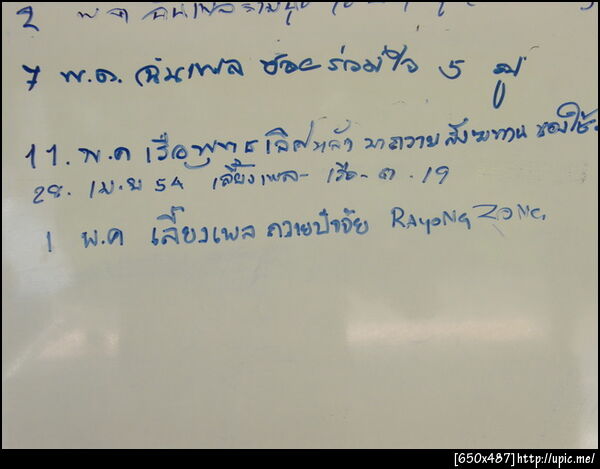 2 พ.ค ฉันเพล
7 พ.ค. ฉันเพล ซอยร่วมใจ 5 รูป
11. พ.ค เรือ มาถวายสังฆทาน ของใช้
28. เม.ย 54 เลี้ยงเพล - เรือ - ต. 19
1 พ.ค เลี้ยงเพล ถวายปัจจัย RAYONG ZONE.
[650x487]http://upic.me/